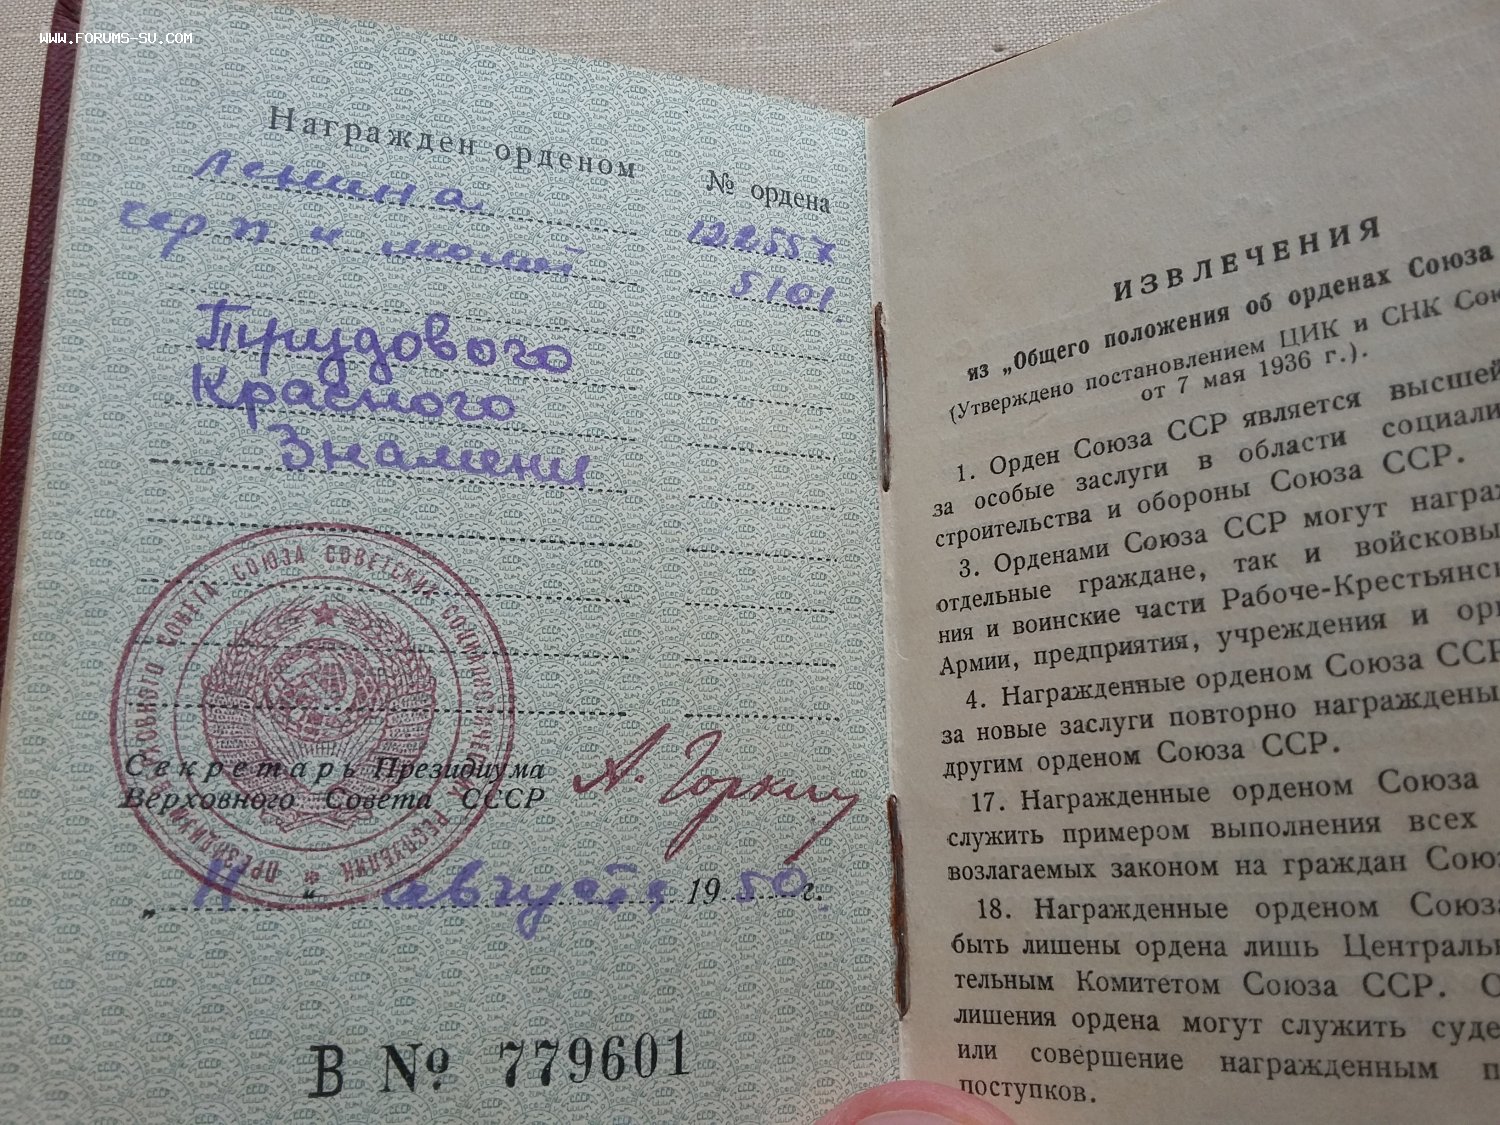 WWW.FORUMS-SU.COM
Награжден орденом
№ ордена
Ленина
серп и молот
5101.
Трудового
Красного
Знамени
ПРЕЗИДИУМ ВЕРХОВНОГО СОВЕТА СОЮЗА СОВЕТСКИХ СОЦИАЛИСТИЧЕСКИХ РЕСПУБЛИК
Секретарь Президиума
Верховного Совета СССР
А. Горкин
„11“ августа 1950 г.
В № 779601
ИЗВЛЕЧЕНИЯ
из „Общего положения об орденах Союза
(Утверждено постановлением ЦИК и СНК Сою
от 7 мая 1936 г.).
1. Орден Союза ССР является высшей
за особые заслуги в области социали
строительства и обороны Союза ССР.
3. Орденами Союза ССР могут награж
отдельные граждане, так и войсковы
ния и воинские части Рабоче-Крестьянск
Армии, предприятия, учреждения и орг
4. Награжденные орденом Союза ССР
за новые заслуги повторно награждены
другим орденом Союза ССР.
17. Награжденные орденом Союза
служить примером выполнения всех
возлагаемых законом на граждан Союз
18. Награжденные орденом Союза
быть лишены ордена лишь Централь
тельным Комитетом Союза ССР. О
лишения ордена могут служить суде
или совершение награжденным п
поступков.